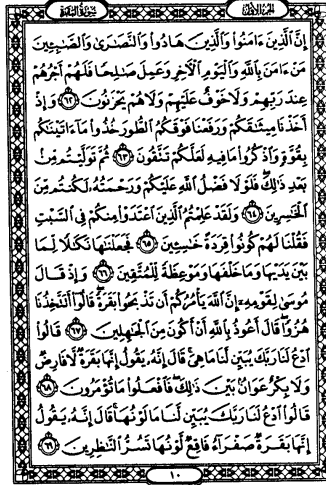 الجزء الأول
سورة البقرة
إِنَّ الَّذِينَ ءَامَنُوا وَالَّذِينَ هَادُوا وَالنَّصَٰرَىٰ وَالصَّٰبِـِٔينَ
مَنْ ءَامَنَ بِاللَّهِ وَالْيَوْمِ الْءَاخِرِ وَعَمِلَ صَٰلِحًا فَلَهُمْ أَجْرُهُمْ
عِندَ رَبِّهِمْ وَلَا خَوْفٌ عَلَيْهِمْ وَلَا هُمْ يَحْزَنُونَ ٦٢ وَإِذْ
أَخَذْنَا مِيثَٰقَكُمْ وَرَفَعْنَا فَوْقَكُمُ الطُّورَ خُذُوا مَا ءَاتَيْنَٰكُم
بِقُوَّةٍ وَاذْكُرُوا مَا فِيهِ لَعَلَّكُمْ تَتَّقُونَ ٦٣ ثُمَّ تَوَلَّيْتُم مِّنۢ
بَعْدِ ذَٰلِكَ فَلَوْلَا فَضْلُ اللَّهِ عَلَيْكُمْ وَرَحْمَتُهُۥ لَكُنتُم مِّنَ
الْخَٰسِرِينَ ٦٤ وَلَقَدْ عَلِمْتُمُ الَّذِينَ اعْتَدَوْا مِنكُمْ فِي السَّبْتِ
فَقُلْنَا لَهُمْ كُونُوا قِرَدَةً خَٰسِـِٔينَ ٦٥ فَجَعَلْنَٰهَا نَكَٰلًا لِّمَا
بَيْنَ يَدَيْهَا وَمَا خَلْفَهَا وَمَوْعِظَةً لِّلْمُتَّقِينَ ٦٦ وَإِذْ قَالَ
مُوسَىٰ لِقَوْمِهِۦٓ إِنَّ اللَّهَ يَأْمُرُكُمْ أَن تَذْبَحُوا بَقَرَةً قَالُوٓا أَتَتَّخِذُنَا
هُزُوًا قَالَ أَعُوذُ بِاللَّهِ أَنْ أَكُونَ مِنَ الْجَٰهِلِينَ ٦٧ قَالُوا
ادْعُ لَنَا رَبَّكَ يُبَيِّن لَّنَا مَا هِيَ قَالَ إِنَّهُۥ يَقُولُ إِنَّهَا بَقَرَةٌ لَّا فَارِضٌ
وَلَا بِكْرٌ عَوَانٌۢ بَيْنَ ذَٰلِكَ فَافْعَلُوا مَا تُؤْمَرُونَ ٦٨
قَالُوا ادْعُ لَنَا رَبَّكَ يُبَيِّن لَّنَا مَا لَوْنُهَا قَالَ إِنَّهُۥ يَقُولُ
إِنَّهَا بَقَرَةٌ صَفْرَآءُ فَاقِعٌ لَّوْنُهَا تَسُرُّ النَّٰظِرِينَ ٦٩
١٠